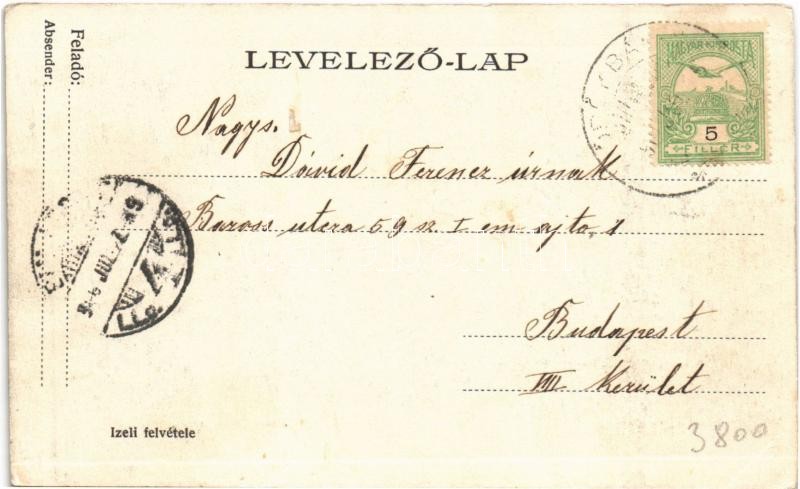 Feladó:
Absender:
LEVELEZŐ-LAP
MAGYAR KIR. POSTA
5
FILLÉR
Nagys.
Dávid Ferencz úrnak
Baross utcza 59 sz. I em ajto, 1
Budapest
VIII kerület
Izeli felvétele
3800